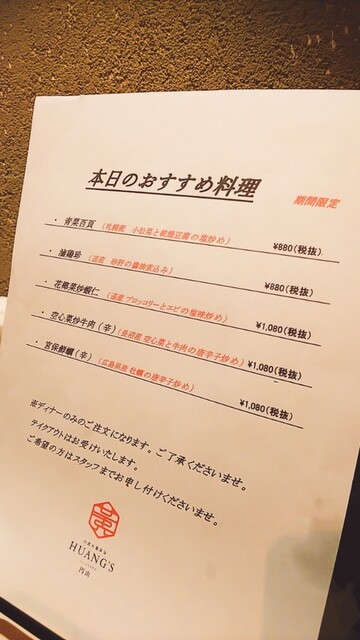 本日のおすすめ料理
期間限定
・ 青菜百頁 （札幌産 小松菜と乾燥豆腐の塩炒め） ¥880（税抜）
・ 滷鶏珍 （道産 砂肝の醤油煮込み） ¥880（税抜）
・ 花椰菜炒蝦仁 （道産ブロッコリーとエビの塩味炒め） ¥1,080（税抜）
・ 空心菜炒牛肉（辛）（長沼産 空心菜と牛肉の唐辛子炒め） ¥1,080（税抜）
・ 宮保鮮蠣（辛） （広島県産 牡蠣の唐辛子炒め） ¥1,080（税抜）
※ディナーのみのご注文になります。ご了承くださいませ。
テイクアウトはお受けいたします。
ご希望の方はスタッフまでお申し付けくださいませ。
HUANG'S
円山